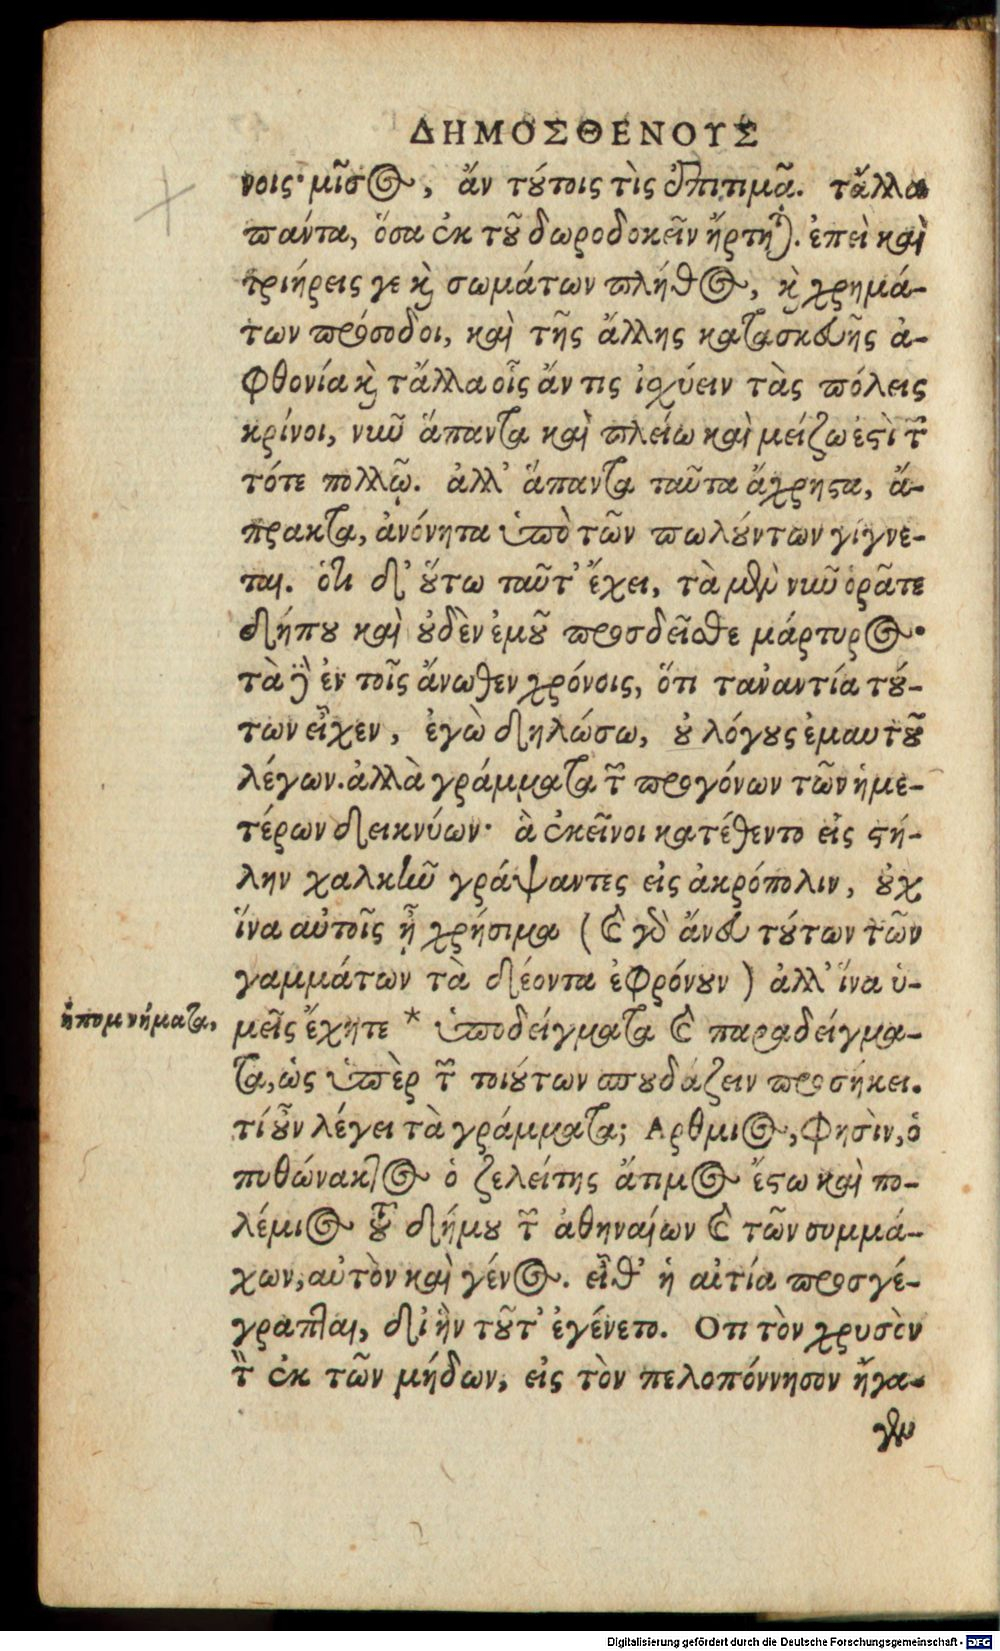 ΔΗΜΟΣΘΕΝΟΥΣ
νοις· μῖσος, ἄν τύτοις τὶς ἐπιτιμᾶ. τἄλλα
πάντα, ὅσα ἐκ τῦ δωροδοκεῖν ἤρτηται. ἐπεὶ καὶ
τριήρεις γε καὶ σωμάτων πλῆθος, καὶ χρημά-
των πρόσοδοι, καὶ τῆς ἄλλης κατασκευῆς ἀ-
φθονία καὶ τἄλλα οἷς ἄν τις ἰσχύειν τὰς πόλεις
κρίνοι, νιῦ ἅπαντα καὶ πλείω καὶ μείζω ἐστὶ τῶν
τότε πολλῷ. ἀλλ' ἅπαντα ταῦτα ἄχρηστα, ἄ-
πρακτα, ἀνόνητα ὑπὸ τῶν πωλούντων γίγνε-
ται. ὅτι δ' οὕτω ταῦτ' ἔχει, τὰ μὲν νῦν ὁρᾶτε
δήπου καὶ οὐδὲν ἐμοῦ προσδεῖσθε μάρτυρος·
τὰ δ' ἐν τοῖς ἄνωθεν χρόνοις, ὅτι τἀναντία τού-
των εἶχεν, ἐγὼ δηλώσω, οὐ λόγους ἐμαυτοῦ
λέγων. ἀλλὰ γράμματα τῶν προγόνων τῶν ἡμε-
τέρων δεικνύων· ἃ ἐκεῖνοι κατέθεντο εἰς στή-
λην χαλκῆν γράψαντες εἰς ἀκρόπολιν, οὐχ
ἵνα αὐτοῖς ᾖ χρήσιμα (καὶ γὸ ἄνευ τούτων τῶν
γαμμάτων τὰ δέοντα ἐφρόνουν) ἀλλ' ἵνα ὑ-
ὑπομνήματα,
μεῖς ἔχητε * ὑποδείγματα καὶ παραδείγμα-
τα, ὡς ὑπὲρ τῶν τοιούτων σπουδάζειν προσήκει.
τί οὖν λέγει τὰ γράμματα; Αρθμιος, φησὶν, ὁ
πυθώνακτος ὁ ζελείτης ἄτιμος ἔστω καὶ πο-
λέμιος τοῦ δήμου τῶν ἀθηναίων καὶ τῶν συμμά-
χων, αὐτὸν καὶ γένος. εἶθ' ἡ αἰτία προσγέ-
γραπται, δι' ἣν τοῦτ' ἐγένετο. Οτι τὸν χρυσὸν
τὸν ἐκ τῶν μήδων, εἰς τὸν πελοπόννησον ἤγα-
γεν
Digitalisierung gefördert durch die Deutsche Forschungsgemeinschaft - DFG